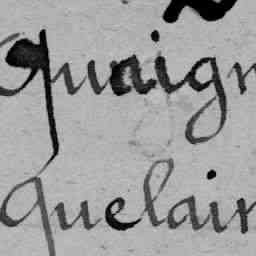 quaign
quelain